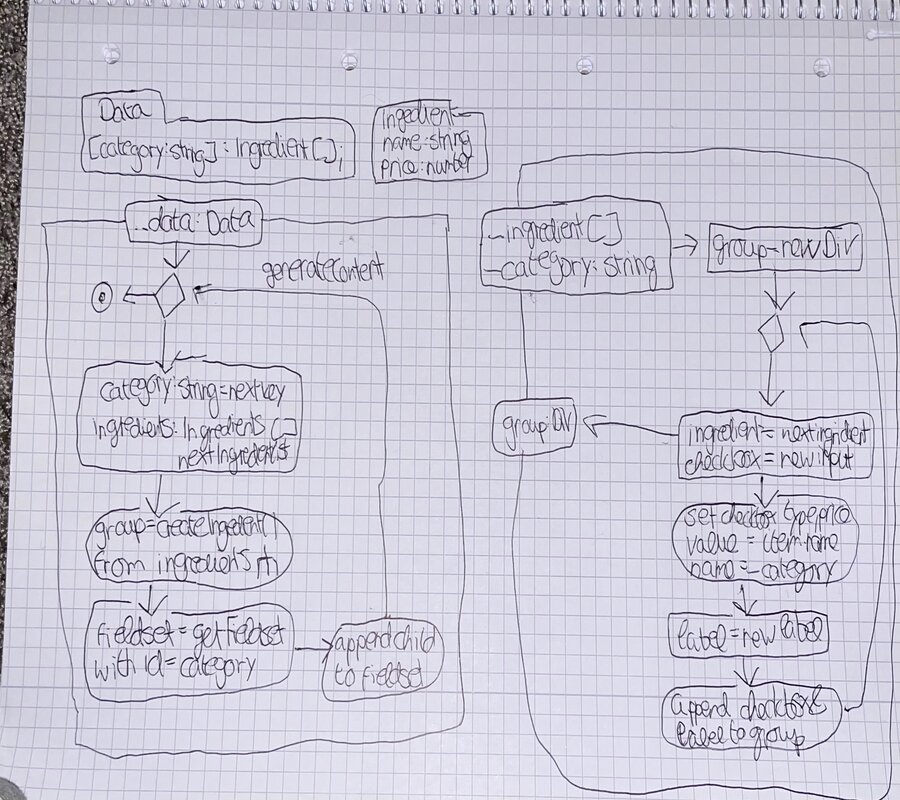 Data
[category:string]: Ingredient[];
ingedient
name:string
price:number
_data: Data
generateContent
category:string=nextkey
ingredients: Ingredients[]
nextIngredients
group=createIngedient
from ingredients
fieldset = getFieldset
with id=category
appendchild
to fieldset
_ingredient[]
_category: string
group=newDiv
group:Div
ingredient=
checkbox = new input
set checkbox type, price
value = item.name
name=_category
label=new label
append checkbox &
label to group